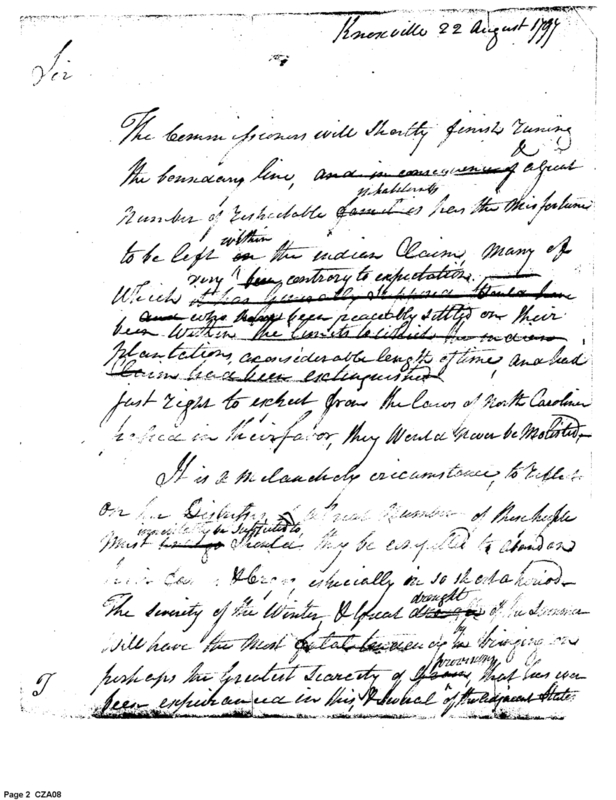 Knoxville 22 August 1797
Sir
The Commissioners will Shortly finish runing
&
the boundary line, and in consequence of a Great
inhabitants
Number of respectable families has the Misfortune
within
to be left on the indian Claim, Many of
very been contrary to expectation
Which it has generally supposed would have
and who have been peaceably settled on their
been within the limits to which the indian
plantations, a considerable length of time, and had
Claim had been extinguished
just right to expect from the laws of North Carolina
passed in their favor, they Would never be Molested
It is a Melancholy circumstance, to reflect
on the Distresses, a Great Number of these people
inevitably be subjected to,
Must Should they be compelled to abandon
especially on so short a period
drought
The severity of the Winter & Great of the Summer
Will have the Most fatal by bringing on
provisions
perhaps the Greatest Scarcity of Grain, that has ever
T
been experianced in this, & Several of the adjacent States
Page 2 CZA08